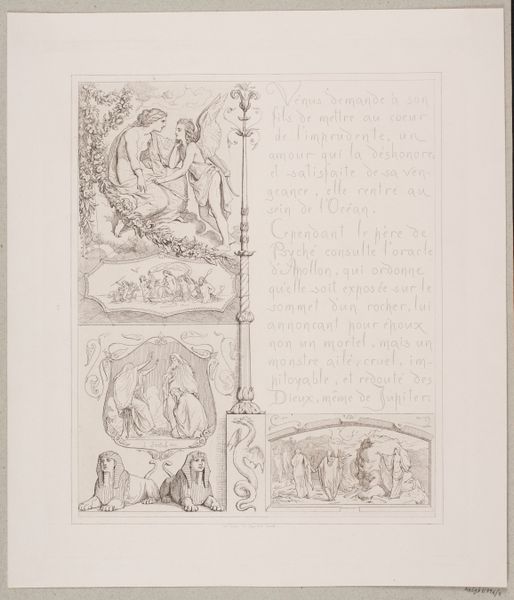 Vénus demande à son
fils de mettre au coeur
de l'imprudente, un
amour qui la déshonore,
et satisfaite de sa ven-
geance, elle rentre au
sein de l'Océan.
Cependant le père de
Psyché consulte l'oracle
d'Apollon, qui ordonne
qu'elle soit exposée sur le
sommet d'un rocher, lui
annonçant pour époux
non un mortel, mais un
monstre ailé, cruel, im-
pitoyable, et redouté des
Dieux, même de Jupiter.